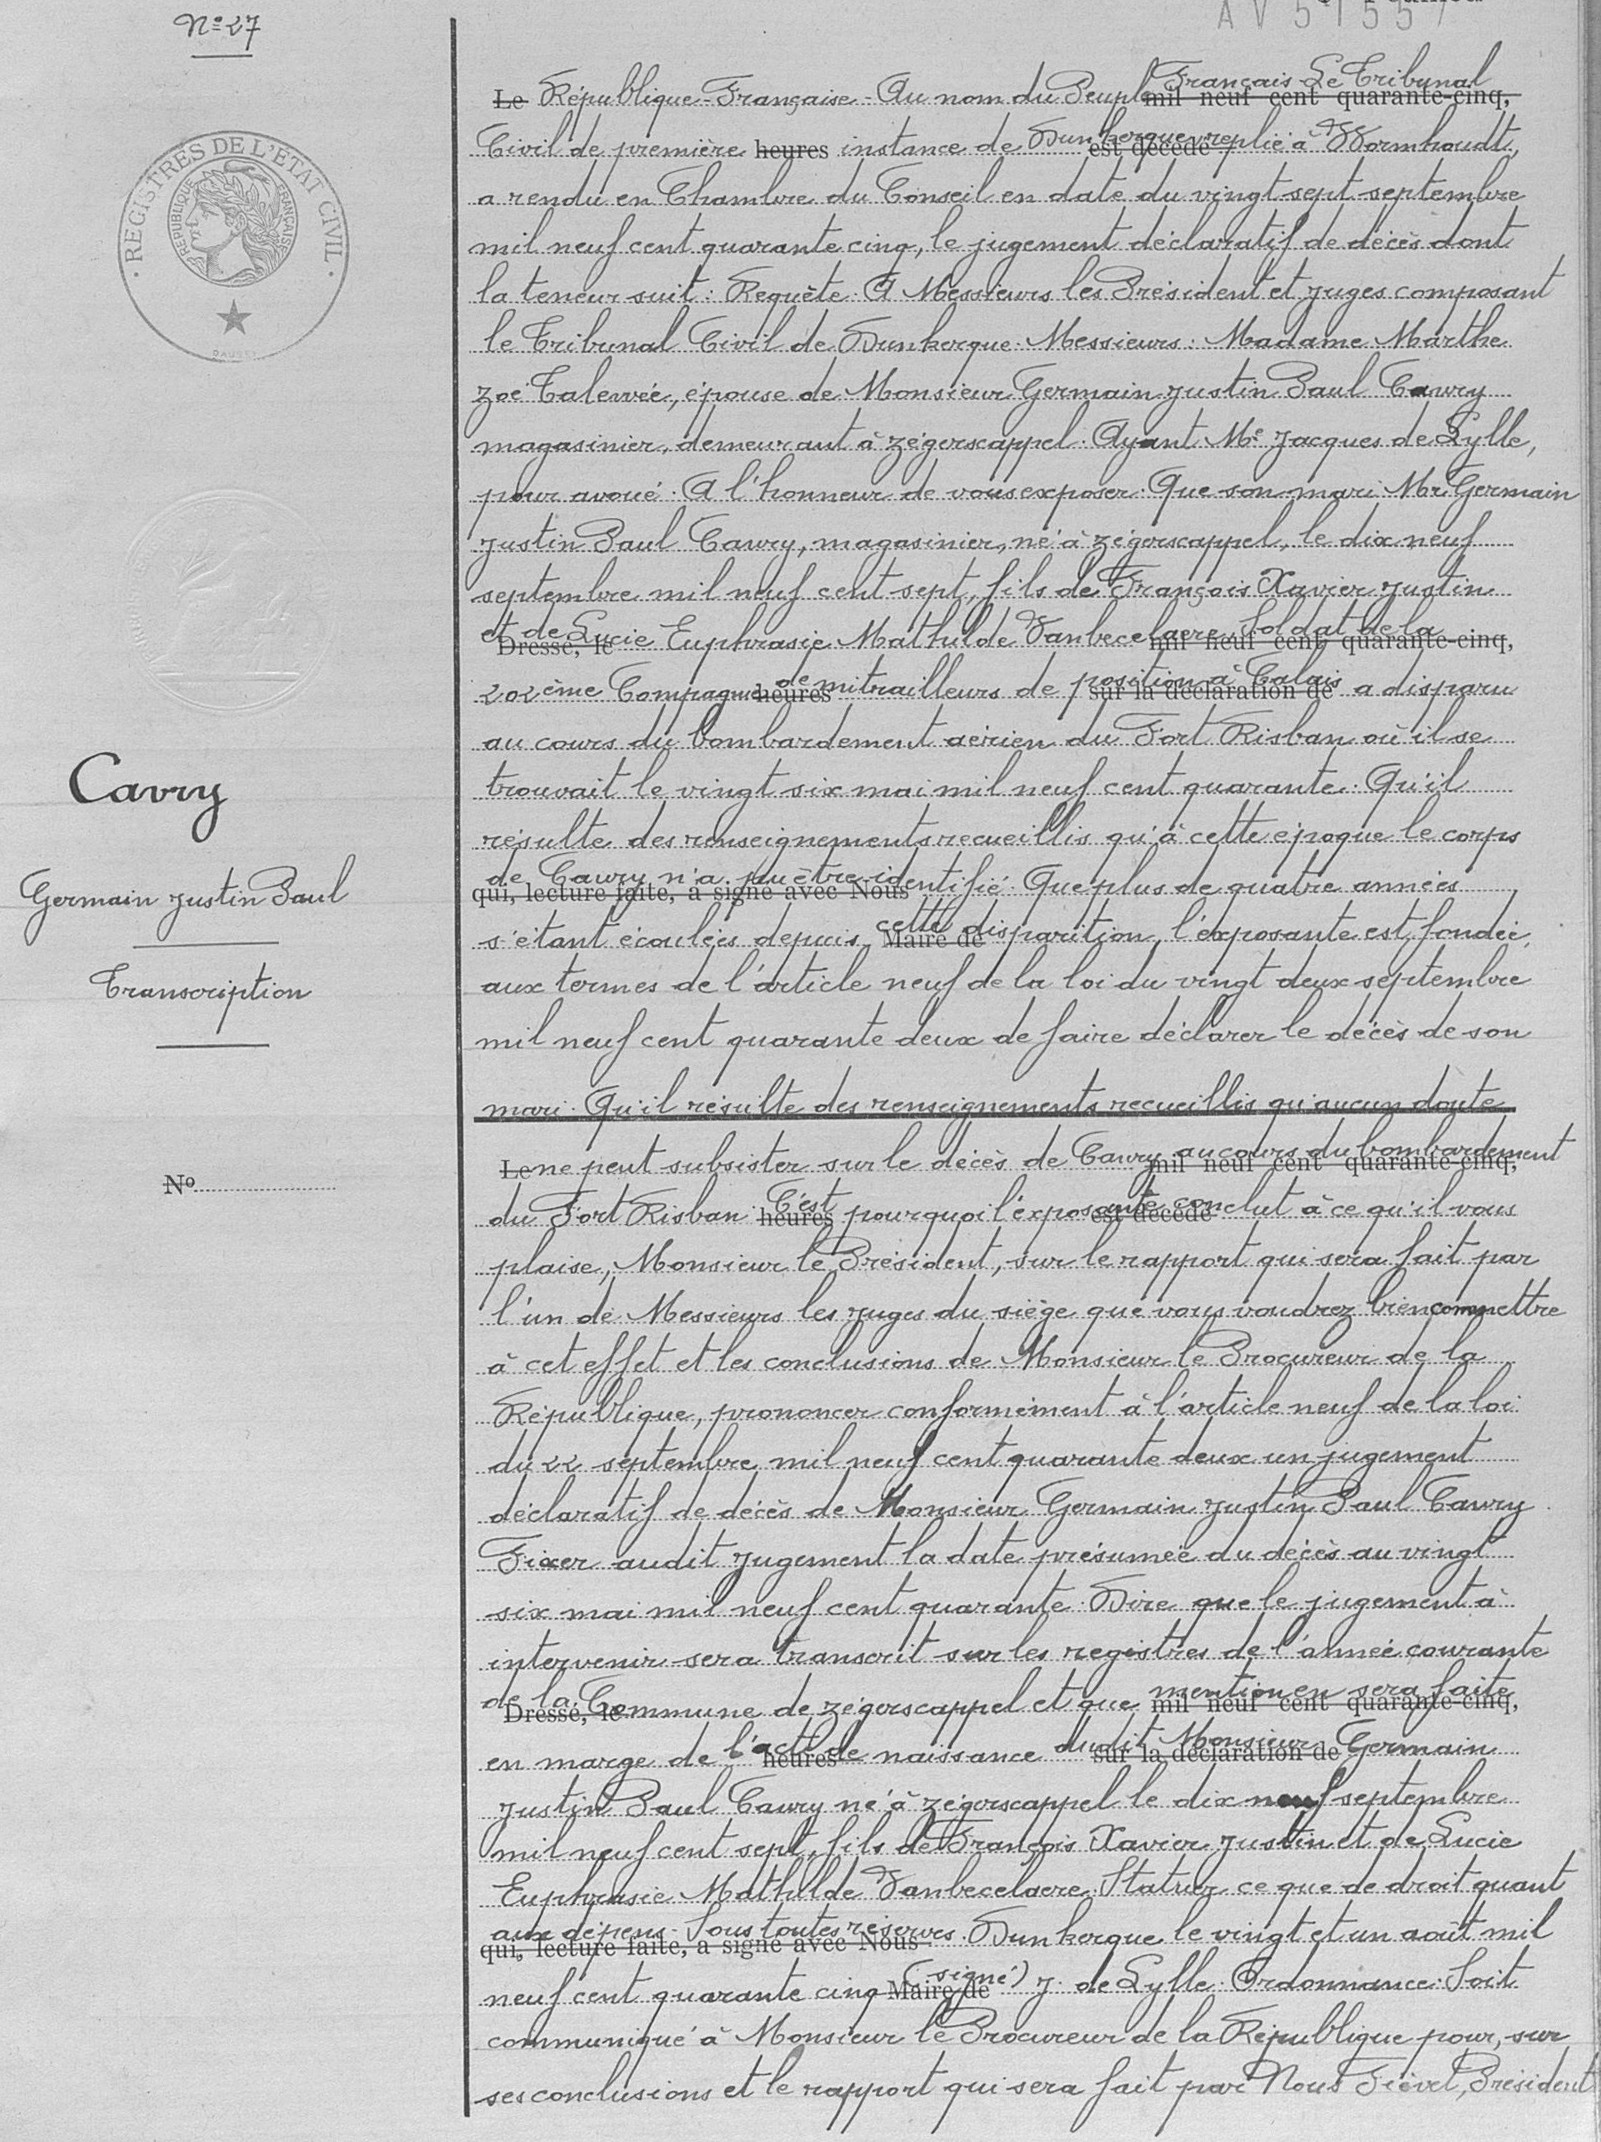 N° 27
AV 5155
REGISTRES DE L'ETAT CIVIL
REPUBLIQUE FRANÇAISE
Cavry
Germain Justin Paul
Transcription
N°
Le République Française - Au nom du Peuple Français - Le Tribunal
mil neuf cent quarante-cinq,
Civil de première heures instance de Dunkerque replié à Wormhoudt,
est décédé
a rendu en Chambre du Conseil en date du vingt-sept septembre
mil neuf cent quarante cinq, le jugement déclaratif de décès dont
la teneur suit : Requête. A Messieurs les Président et Juges composant
le Tribunal Civil de Dunkerque. Messieurs : Madame Marthe
Zoé Taleuvée, épouse de Monsieur Germain Justin Paul Cavry
magasinier, demeurant à Zégerscappel. Ayant Me Jacques de Lylle,
pour avoué. A l'honneur de vous exposer. Que son mari Mr Germain
Justin Paul Cavry, magasinier, né à Zégerscappel, le dix neuf
septembre mil neuf cent sept, fils de François Xavier Justin
et de Lucie Euphrasie Mathilde Vanbecelaere. Soldat de la
Dressé, le mil neuf cent quarante-cinq,
202ème Compagnie de mitrailleurs de position à Calais a disparu
heures sur la déclaration de
au cours du bombardement aérien du Fort Risban où il se
trouvait le vingt six mai mil neuf cent quarante. Qu'il
résulte des renseignements recueillis qu'à cette époque le corps
de Cavry n'a pu être identifié. Que plus de quatre années
qui, lecture faite, a signé avec Nous
s'étant écoulées depuis cette disparition, l'exposante est fondée,
Maire de
aux termes de l'article neuf de la loi du vingt deux septembre
mil neuf cent quarante deux de faire déclarer le décès de son
mari. Qu'il résulte des renseignements recueillis qu'aucun doute
Le ne peut subsister sur le décès de Cavry au cours du bombardement
mil neuf cent quarante-cinq,
du Fort Risban. C'est pourquoi l'exposante conclut à ce qu'il vous
heures est décédé
plaise, Monsieur le Président, sur le rapport qui sera fait par
l'un de Messieurs les Juges du siège que vous voudrez bien commettre
à cet effet et les conclusions de Monsieur le Procureur de la
République, prononcer conformément à l'article neuf de la loi
du 22 septembre mil neuf cent quarante deux un jugement
déclaratif de décès de Monsieur Germain Justin Paul Cavry.
Fixer audit jugement la date présumée du décès au vingt
six mai mil neuf cent quarante. Dire que le jugement à
intervenir sera transcrit sur les registres de l'année courante
de la Commune de Zégerscappel et que mention en sera faite
Dressé, le mil neuf cent quarante-cinq,
en marge de l'acte de naissance dudit Monsieur Germain
heures sur la déclaration de
Justin Paul Cavry né à Zégerscappel le dix neuf septembre
mil neuf cent sept, fils de François Xavier Justin et de Lucie
Euphrasie Mathilde Vanbecelaere. Statuer ce que de droit quant
aux dépens. Sous toutes réserves. Dunkerque le vingt et un août mil
qui, lecture faite, a signé avec Nous
neuf cent quarante cinq (signé) J. de Lylle. Ordonnance : Soit
Maire de
communiqué à Monsieur le Procureur de la République pour, sur
ses conclusions et le rapport qui sera fait par Nous Fiévet, Président